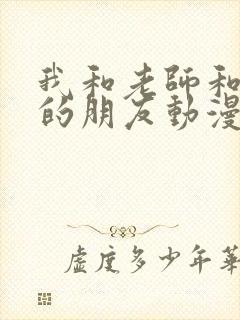 我和老師和
的朋友動漫
虛度多少年華